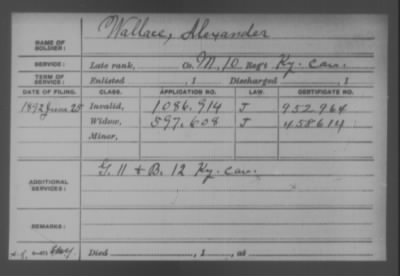 NAME OF SOLDIER: Wallace, Alexander
SERVICE: Late rank, Co. M. 10 Reg't Ky. Cav.
TERM OF SERVICE: Enlisted , 1 Discharged , 1
DATE OF FILING. CLASS. APPLICATION NO. LAW. CERTIFICATE NO.
1892 June 25 Invalid, 1086.914 J 952964
Widow, 597.608 J 458614
Minor,
ADDITIONAL SERVICES: G. 11 + B. 12 Ky. Cav.
REMARKS:
Died , 1 , at